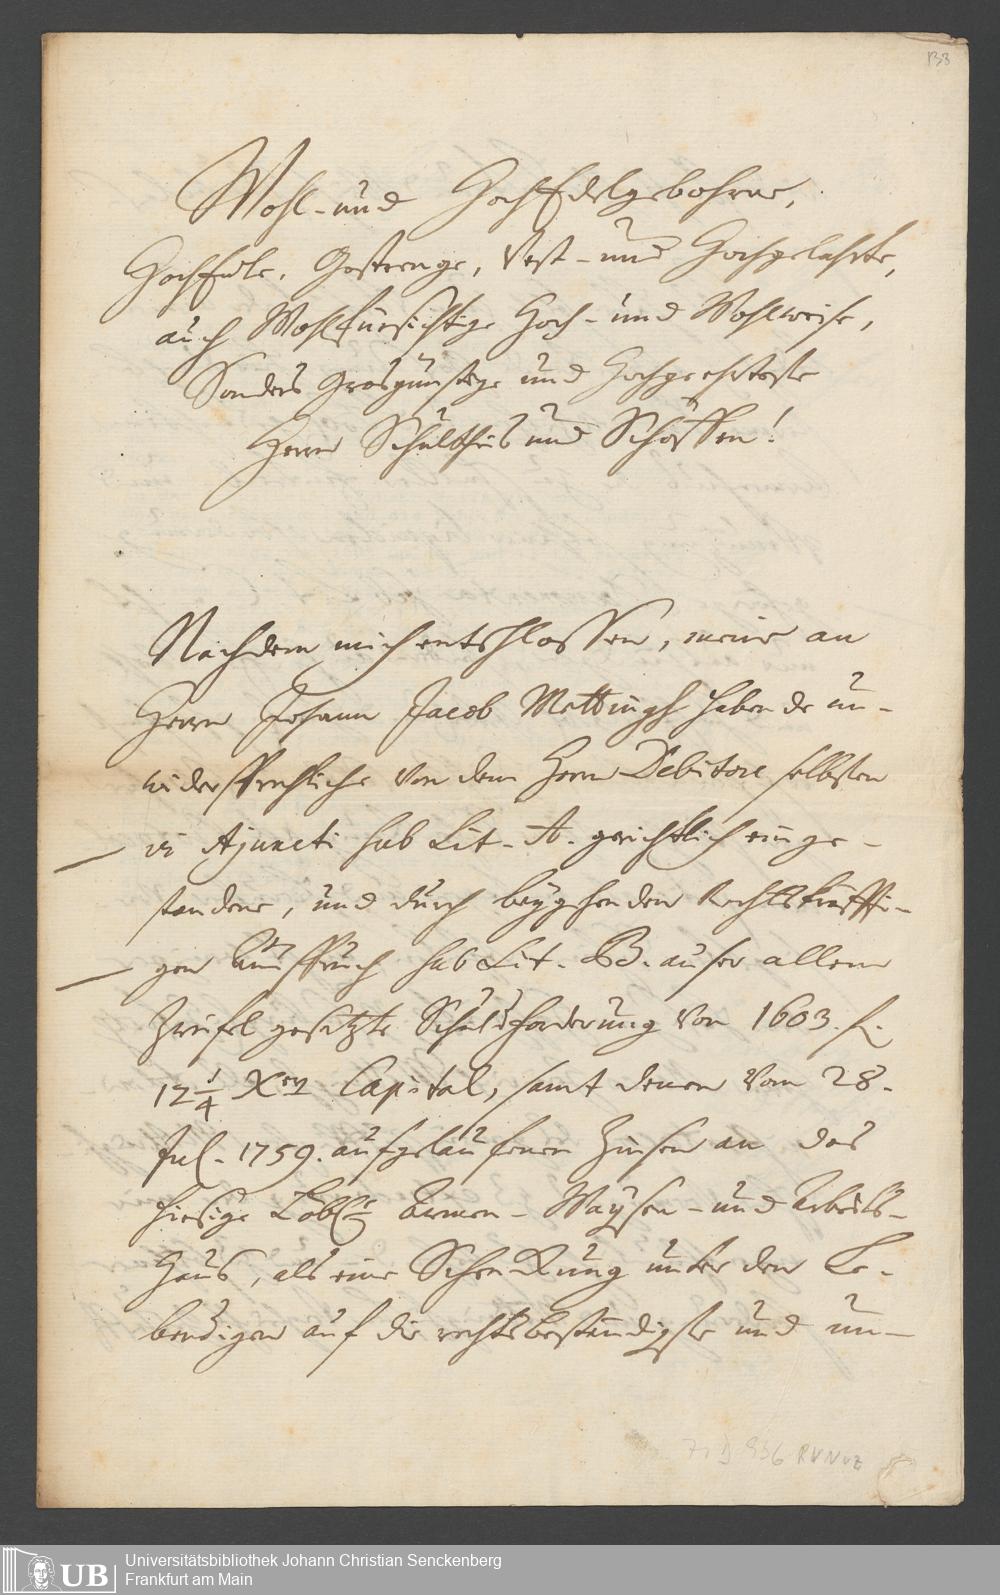 133
Wohl- und HochEdelgebohrne,
HochEdle, Gestrenge, Vest- und Hochgelahrte,
auch Wohlfürsichtige Hoch- und Wohlweise,
Sonders Grosgünstige und Hochgeehrteste
Herrn Schultheis und Schöffen!
Nachdem mich entschlossen, meine an
Herrn Johann Jacob Mettingh habende un-
widersprechliche von dem Herrn Debitore selbsten
in Ajuncti sub Lit. A. gerichtlich einge-
standene, und durch beygehenden Rechtskräffti-
gen Ausspruch sub Lit. B. auser allem
Zweifel gesetzte Schuldforderung von 1603. f.
12 1/4 Xer Capital, samt denen vom 28.
Jul. 1759. aufgelaufenen Zinsen an das
hiesige Löbl. Armen- Waysen- und Arbeits-
Haus, als eine Schenkung unter den Le-
bendigen auf die rechtsbeständigste und un-
UB
Universitätsbibliothek Johann Christian Senckenberg
Frankfurt am Main